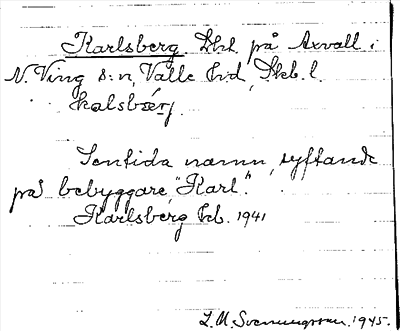 Karlsberg. Lht på Axvall i
N. Ving s:n, Valle hd, Skb. l.
kalsbærj.
Sentida namn, syftande
på bebyggare "Karl".
Karlsberg Ekb. 1941
L. M. Svenungsson. 1945.